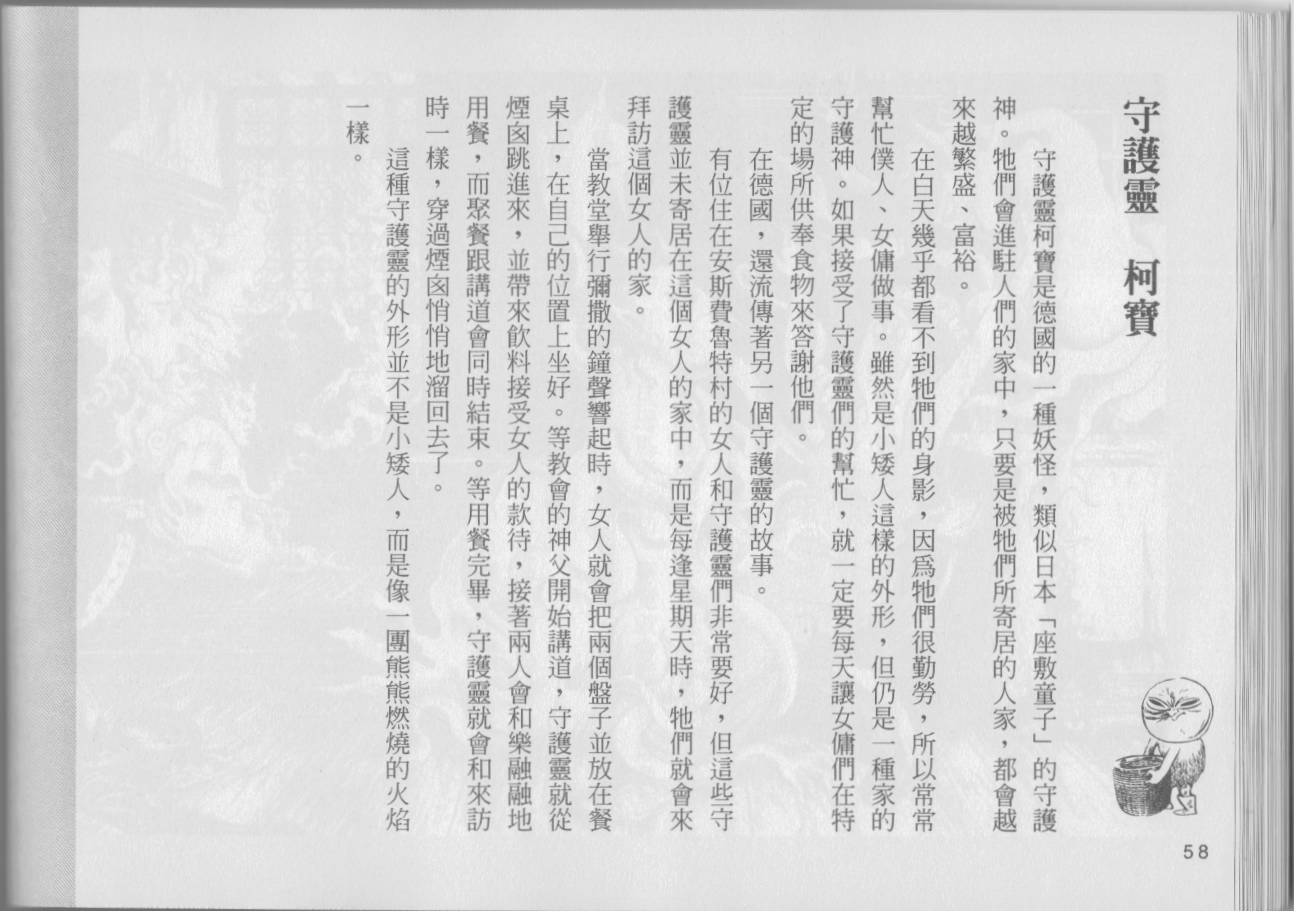 守護靈　柯寶
守護靈柯寶是德國的一種妖怪，類似日本「座敷童子」的守護
神。牠們會進駐人們的家中，只要是被牠們所寄居的人家，都會越
來越繁盛、富裕。
在白天幾乎都看不到牠們的身影，因爲牠們很勤勞，所以常常
幫忙僕人、女傭做事。雖然是小矮人這樣的外形，但仍是一種家的
守護神。如果接受了守護靈們的幫忙，就一定要每天讓女傭們在特
定的場所供奉食物來答謝他們。
在德國，還流傳著另一個守護靈的故事。
有位住在安斯費魯特村的女人和守護靈們非常要好，但這些守
護靈並未寄居在這個女人的家中，而是每逢星期天時，牠們就會來
拜訪這個女人的家。
當教堂舉行彌撒的鐘聲響起時，女人就會把兩個盤子並放在餐
桌上，在自己的位置上坐好。等教會的神父開始講道，守護靈就從
煙囪跳進來，並帶來飲料接受女人的款待，接著兩人會和樂融融地
用餐，而聚餐跟講道會同時結束。等用餐完畢，守護靈就會和來訪
時一樣，穿過煙囪悄悄地溜回去了。
這種守護靈的外形並不是小矮人，而是像一團熊熊燃燒的火焰
一樣。
58